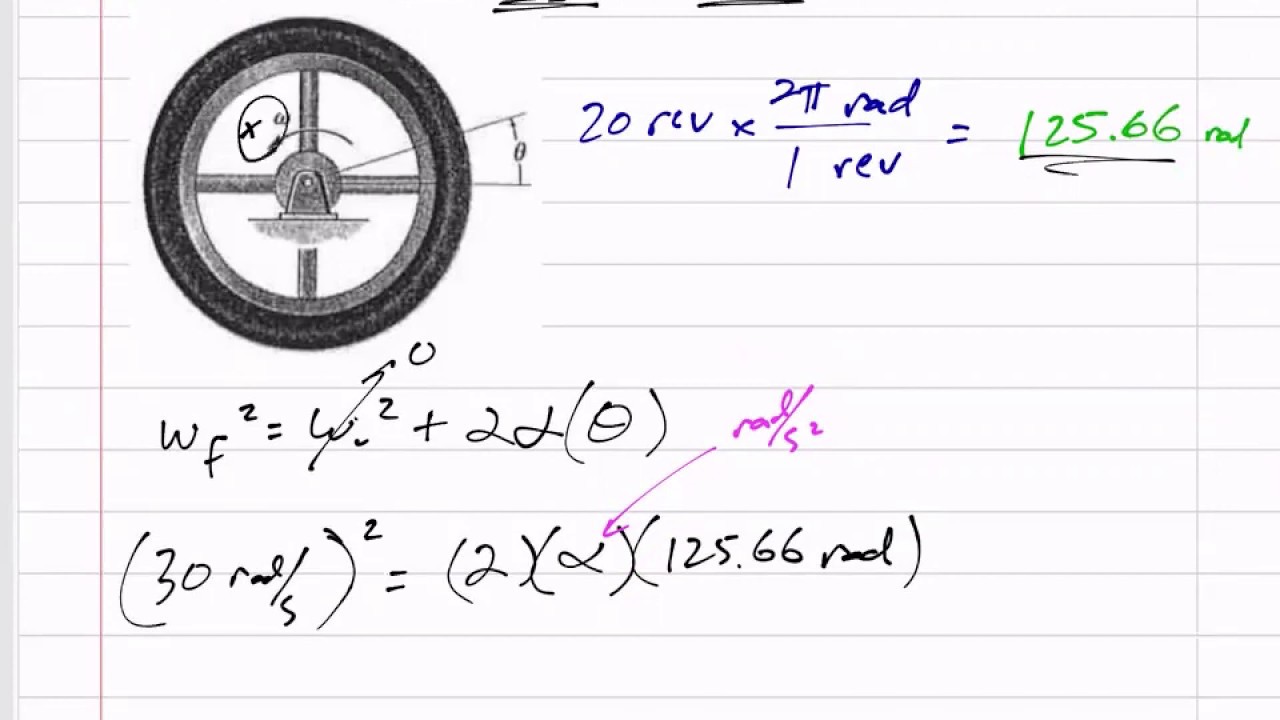 20 rev × 2π rad / 1 rev = 125.66 rad
θ
0
w_f² = w_i² + 2α(θ)
rad/s²
(30 rad/s)² = (2)(α)(125.66 rad)